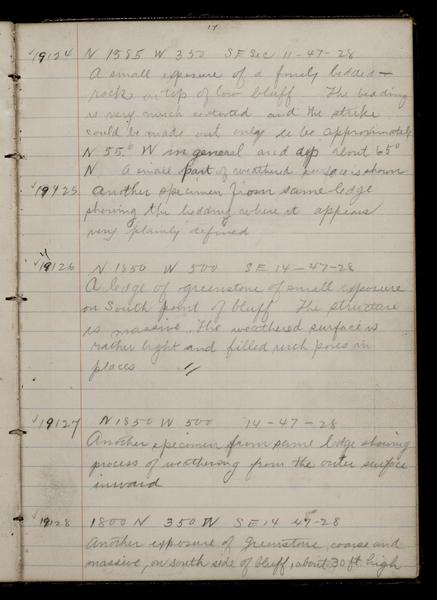 17
19124 N 1585 W 350 SE Sec 11-47-28
A small exposure of a finely bedded
rock on top of low bluff The bedding
is very much contorted and the strike
could be made out only to be approximately
N 55° W in general and dip about 65°
N A small part of weathered surface is shown
19125 Another specimen from same ledge
showing the bedding where it appears
very plainly defined
19126 N 1850 W 500 SE 14-47-28
A ledge of greenstone of small exposure
on South point of bluff The structure
is massive. The weathered surface is
rather light and filled with pores in
places
19127 N 1850 W 500 14-47-28
Another specimen from same ledge showing
process of weathering from the outer surface
inward
19128 1800 N 350 W SE 14 47-28
Another exposure of Greenstone, coarse and
massive, on south side of bluff, about 30 ft. high